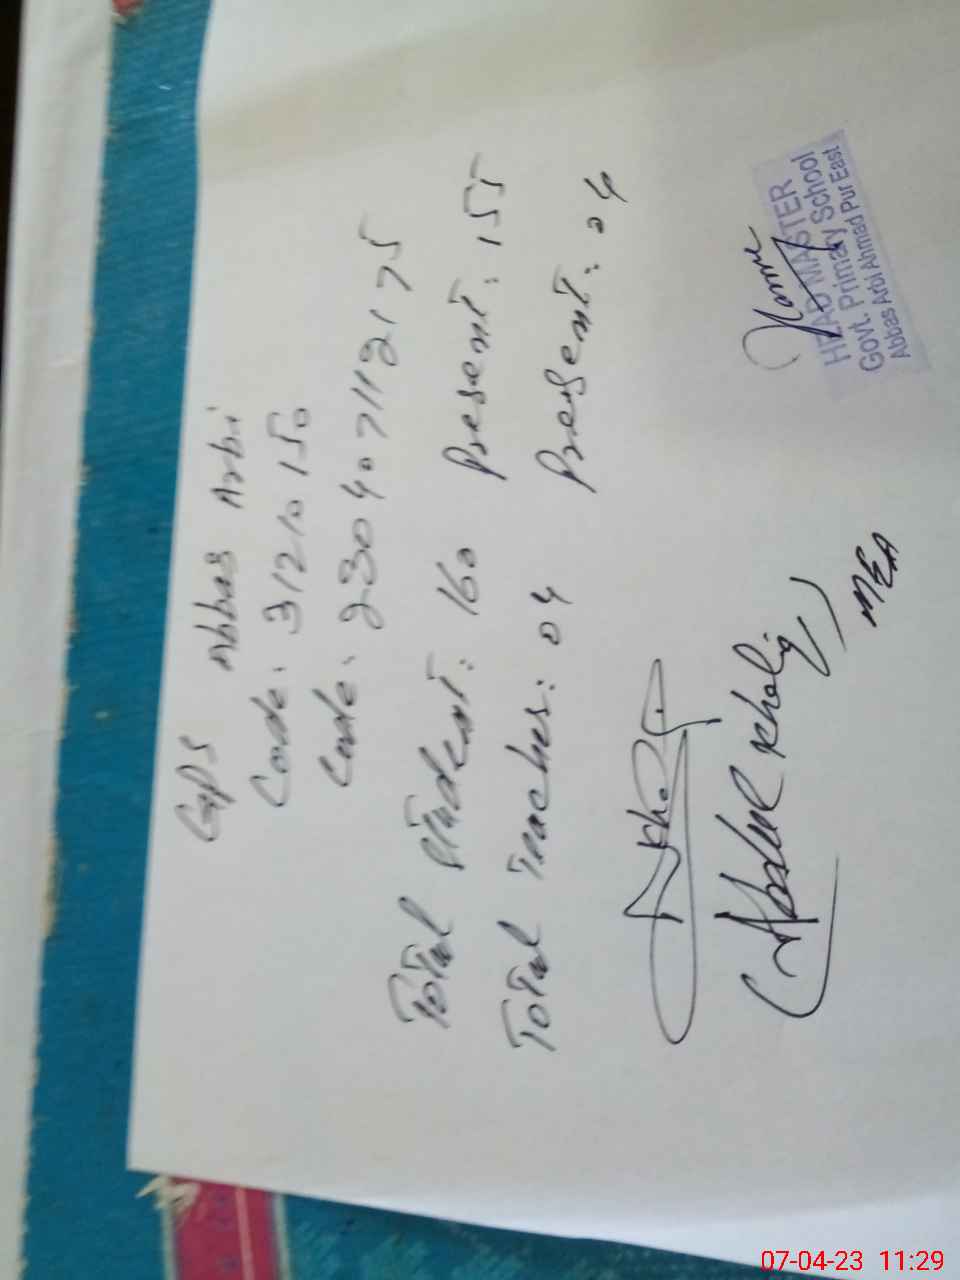 GPS Abbas Arbi
Code: 31210150
Code: 230407112175
Total Student: 160 Present: 155
Total Teachus: 04 Present: 04
(Abdul Khaliq)
MEA
HEAD MASTER
Govt. Primary School
Abbas Arbi Ahmad Pur East
07-04-23 11:29